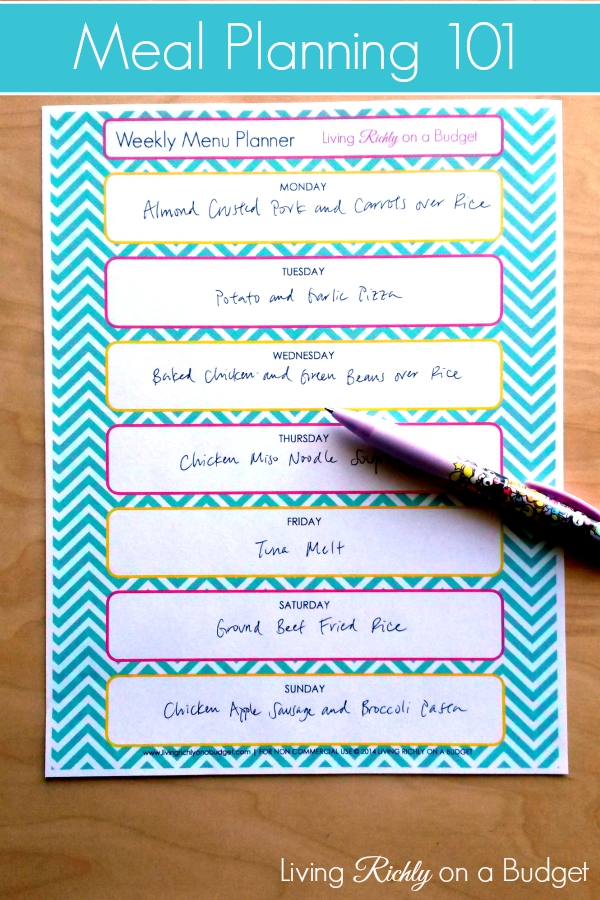 Meal Planning 101
Weekly Menu Planner Living Richly on a Budget
MONDAY
Almond Crusted Pork and Carrots over Rice
TUESDAY
Potato and Garlic Pizza
WEDNESDAY
Baked Chicken and Green Beans over Rice
THURSDAY
Chicken Miso Noodle Soup
FRIDAY
Tuna Melt
SATURDAY
Ground Beef Fried Rice
SUNDAY
Chicken Apple Sausage and Broccoli Pasta
www.livingrichlyonabudget.com | FOR NON COMMERCIAL USE © 2014 LIVING RICHLY ON A BUDGET
Living Richly on a Budget